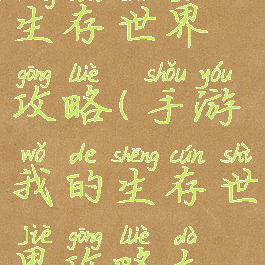 生存世界
gōng lüè shǒu yóu
攻略(手游
wǒ de shēng cún shì
我的生存世
jiè gōng lüè dà
界攻略大